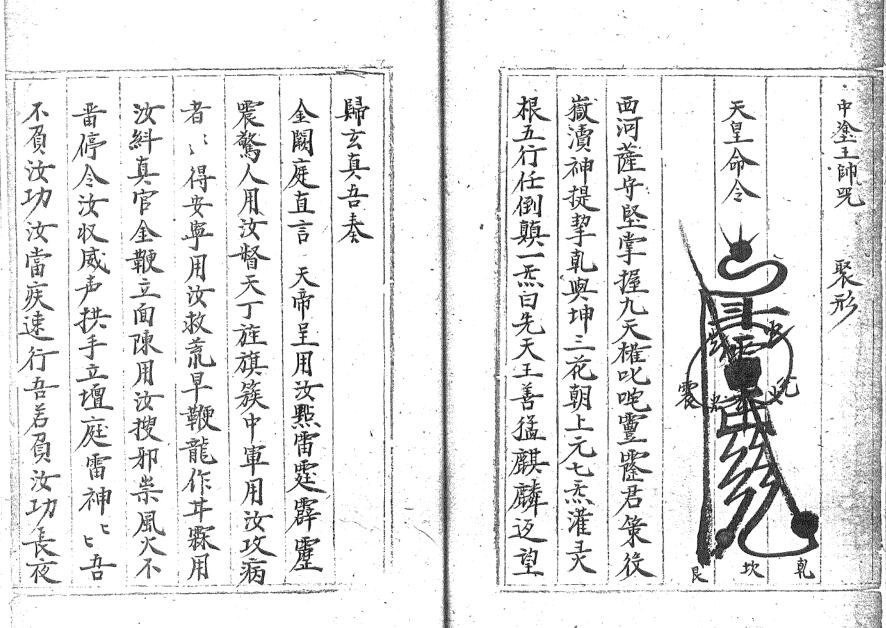 中塗王帥咒　聚形
天皇命令
震
艮 坎 乾
西河薩守堅掌握九天權叱咤靈霳君策役
嶽瀆神提挈乹與坤三花朝上元七炁灌灵
根五行任倒顛一炁曰先天王善猛麒麟返望
歸玄真吾奏
金闕庭直言　天帝呈用汝㸃雷霆霹靂
震驚人用汝督天丁旌旗簇中軍用汝攻病
者〻得安寧用汝救荒旱鞭龍作甘霖用
汝糾真官金鞭立面陳用汝搜邪祟風火不
畱停令汝収威声拱手立壇庭雷神〻〻吾
不負汝功汝當疾速行吾若負汝功長夜